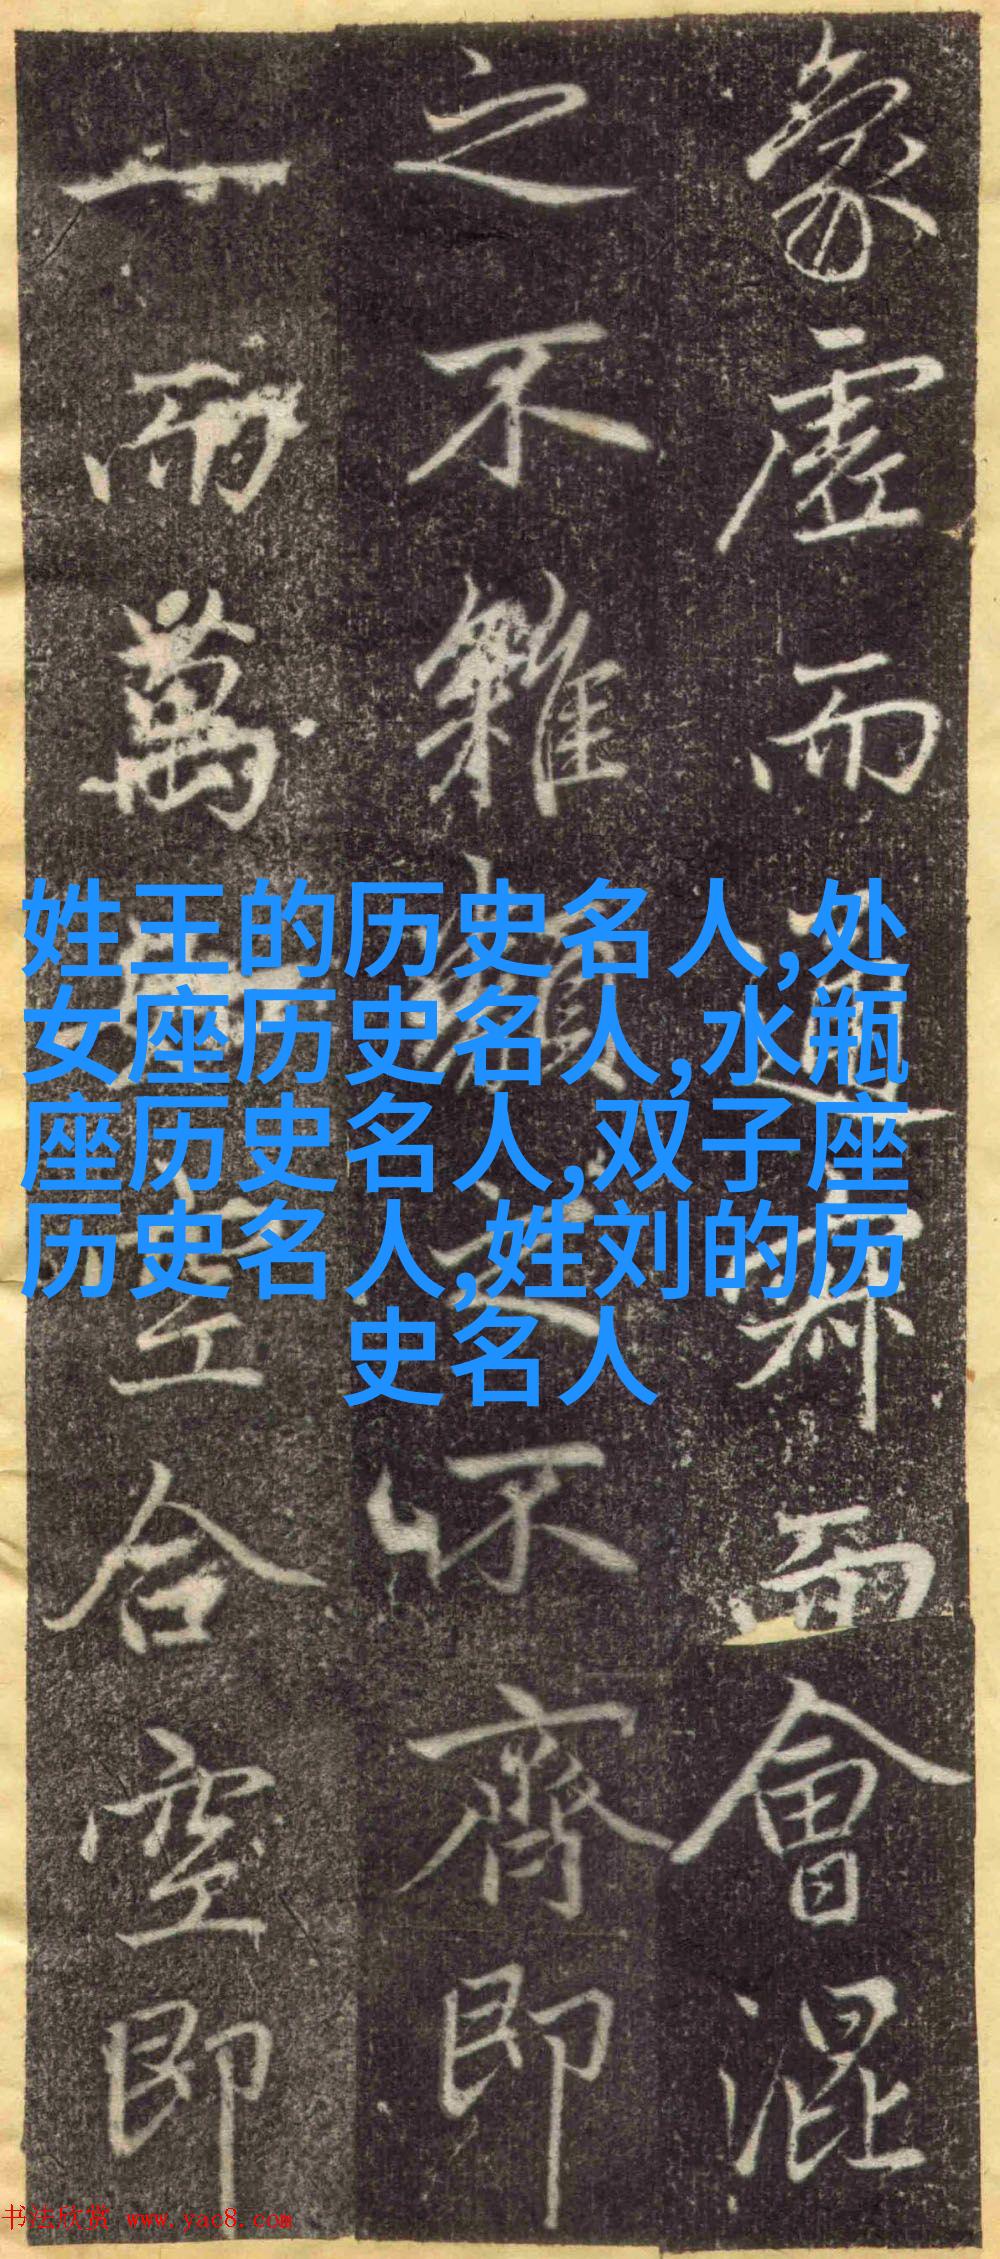 象虚而
而會混
之不雜
不齊即
一而萬
合空即
姓王的历史名人,处
女座历史名人,水瓶
座历史名人,双子座
历史名人,姓刘的历
史名人
书法欣赏 www.yac8.com